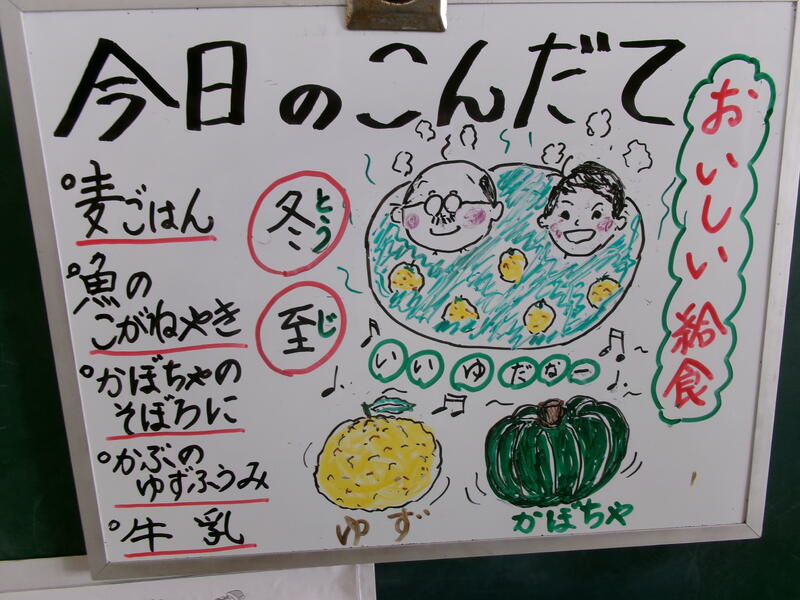 今日のこんだて
おいしい給食
○麦ごはん
○魚の
こがねやき
○かぼちゃの
そぼろに
○かぶの
ゆずふうみ
○牛乳
冬とう
至じ
いいゆだなー
ゆず
かぼちゃ